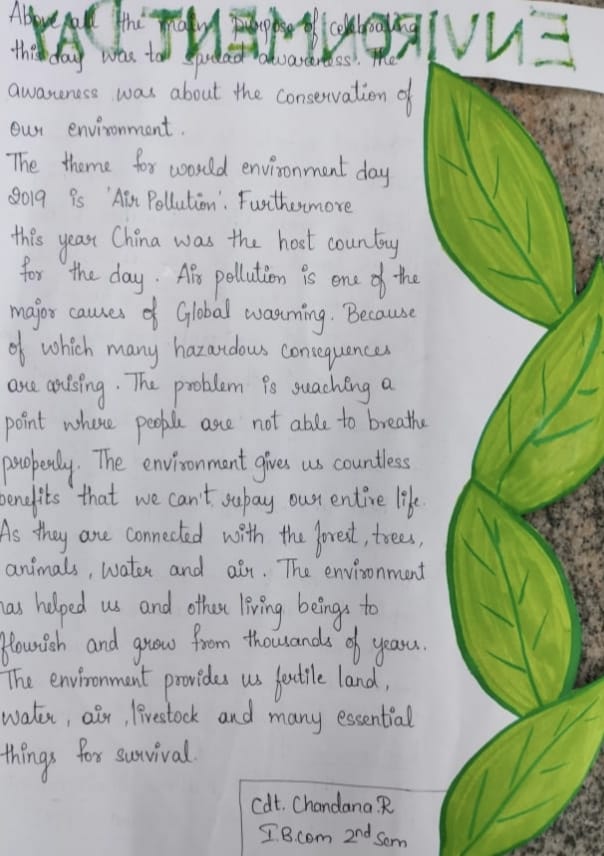 ENVIRONMENT DAY
Above all the main purpose of celebrating
this day was to spread awareness. The
awareness was about the conservation of
our environment.
The theme for world environment day
2019 is 'Air Pollution'. Furthermore
this year China was the host country
for the day. Air pollution is one of the
major causes of Global warming. Because
of which many hazardous consequences
are arising. The problem is reaching a
point where people are not able to breathe
properly. The environment gives us countless
benefits that we can't repay our entire life.
As they are connected with the forest, trees,
animals, water and air. The environment
has helped us and other living beings to
flourish and grow from thousands of years.
The environment provides us fertile land,
water, air, livestock and many essential
things for survival.
Cdt. Chandana.R
I.B.com 2nd Sem